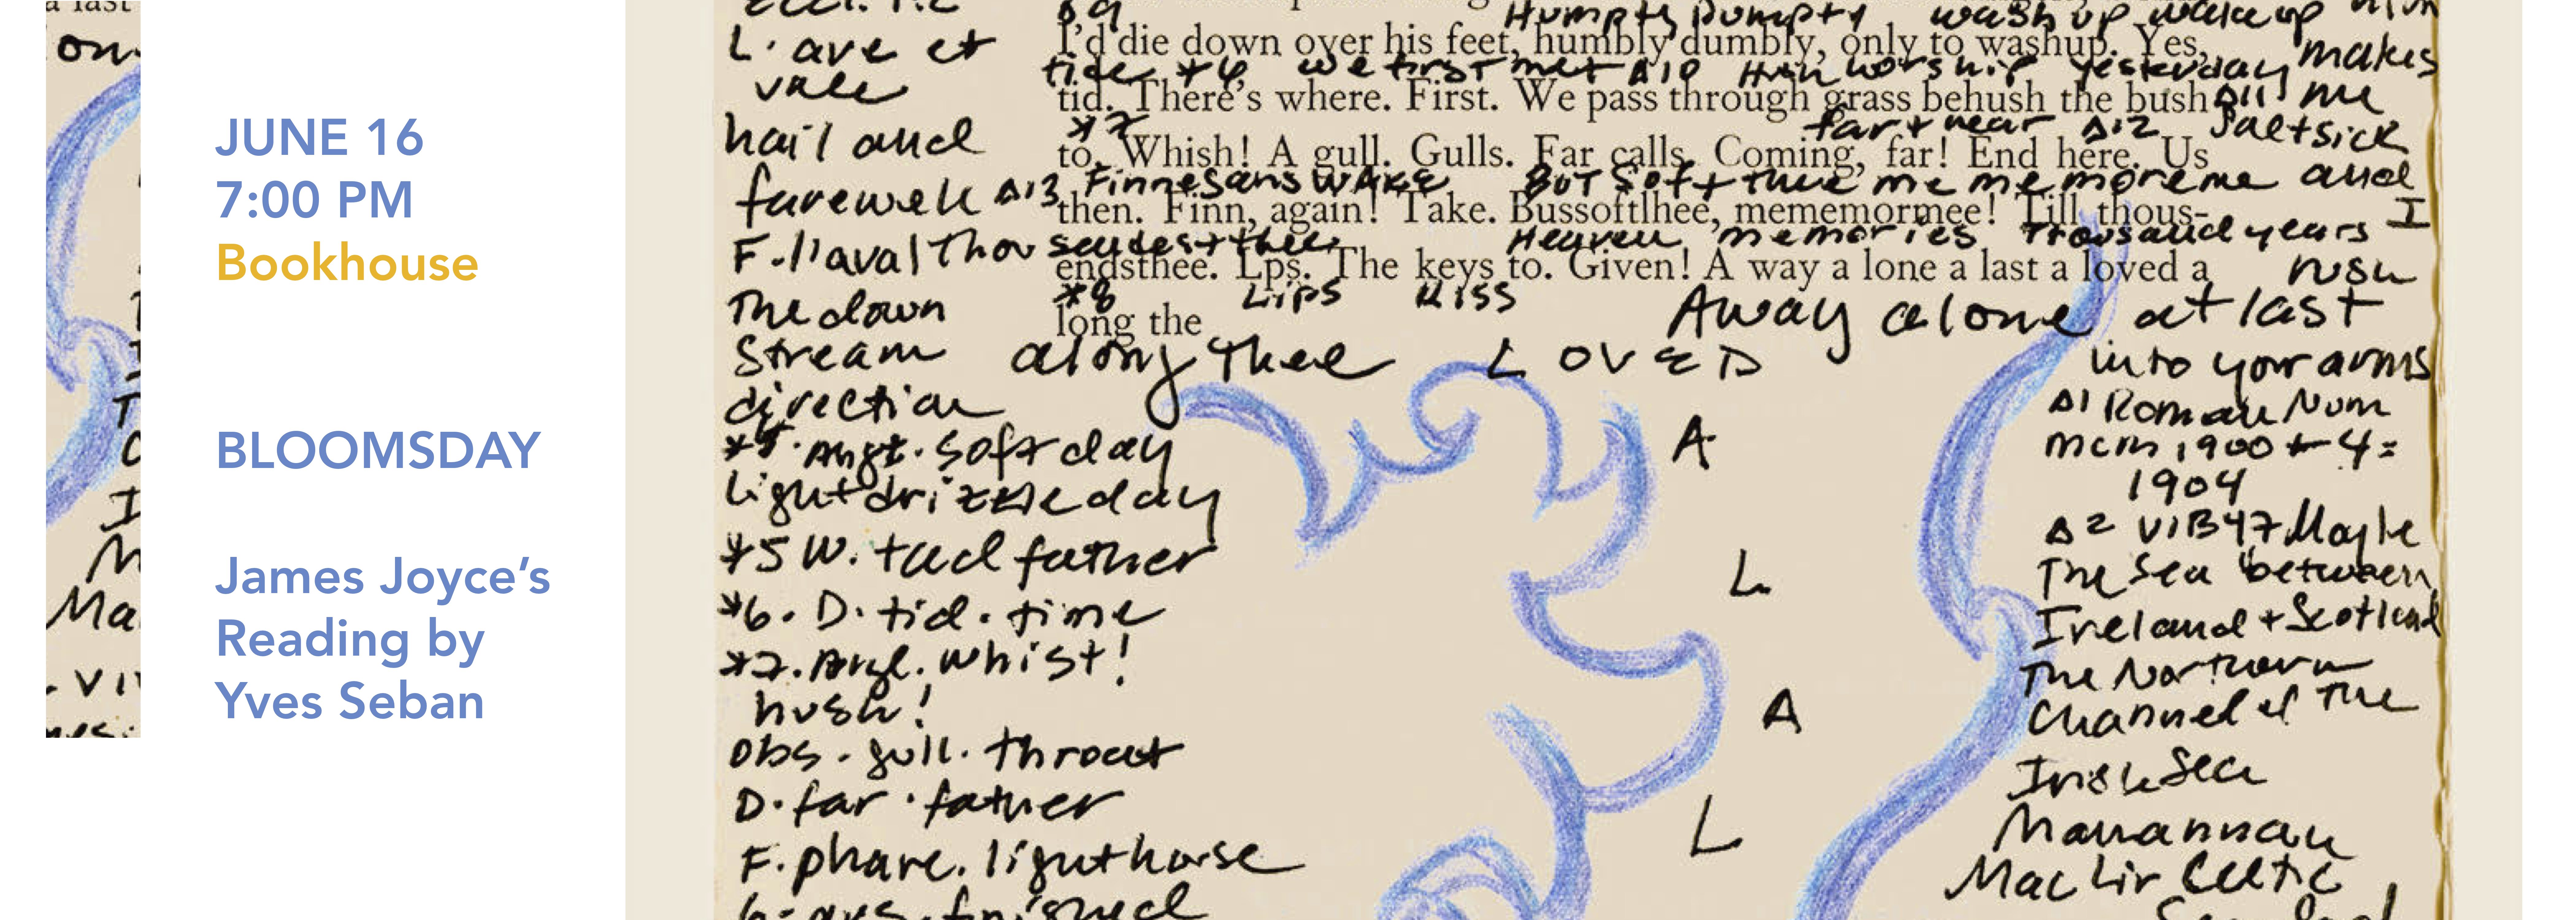 a last
on
JUNE 16
7:00 PM
Bookhouse
BLOOMSDAY
James Joyce's
Reading by
Yves Seban
Humpty Dumpty wash up wake up
I'd die down over his feet, humbly dumbly, only to washup. Yes,
tide *6 we first met Δ10 Hush worship yesterday makes
tid. There's where. First. We pass through grass behush the bush Δ11 me
*7 far + near Δ12 Saltsick
to. Whish! A gull. Gulls. Far calls. Coming, far! End here. Us
Δ13 Finnegans Wake But Soft thee me me me more me and
then. Finn, again! Take. Bussoftlhee, mememormee! Till thous-
sendest thee Heaven memories Thousand years I
endsthee. Lps. The keys to. Given! A way a lone a last a loved a
*8 Lips Kiss rush
long the
Away alone at last
along thee LOVED
into your arms
L. ave et
vale
hail and
farewell
F. l'aval
The down
Stream
direction
soft day
light drizzle day
*5 W. tad father
*6. D. tid. time
*7. Angl. whist!
hush!
obs. gull. throat
D. far. father
F. phare. lighthouse
finished
A
L
A
L
Δ1 Roman Num
MCM 1900 + 4 =
1904
Δ2 VIB47 Maybe
The Sea between
Ireland + Scotland
The Northern
Channel of the
Irish Sea
Manannan
MacLir Celtic